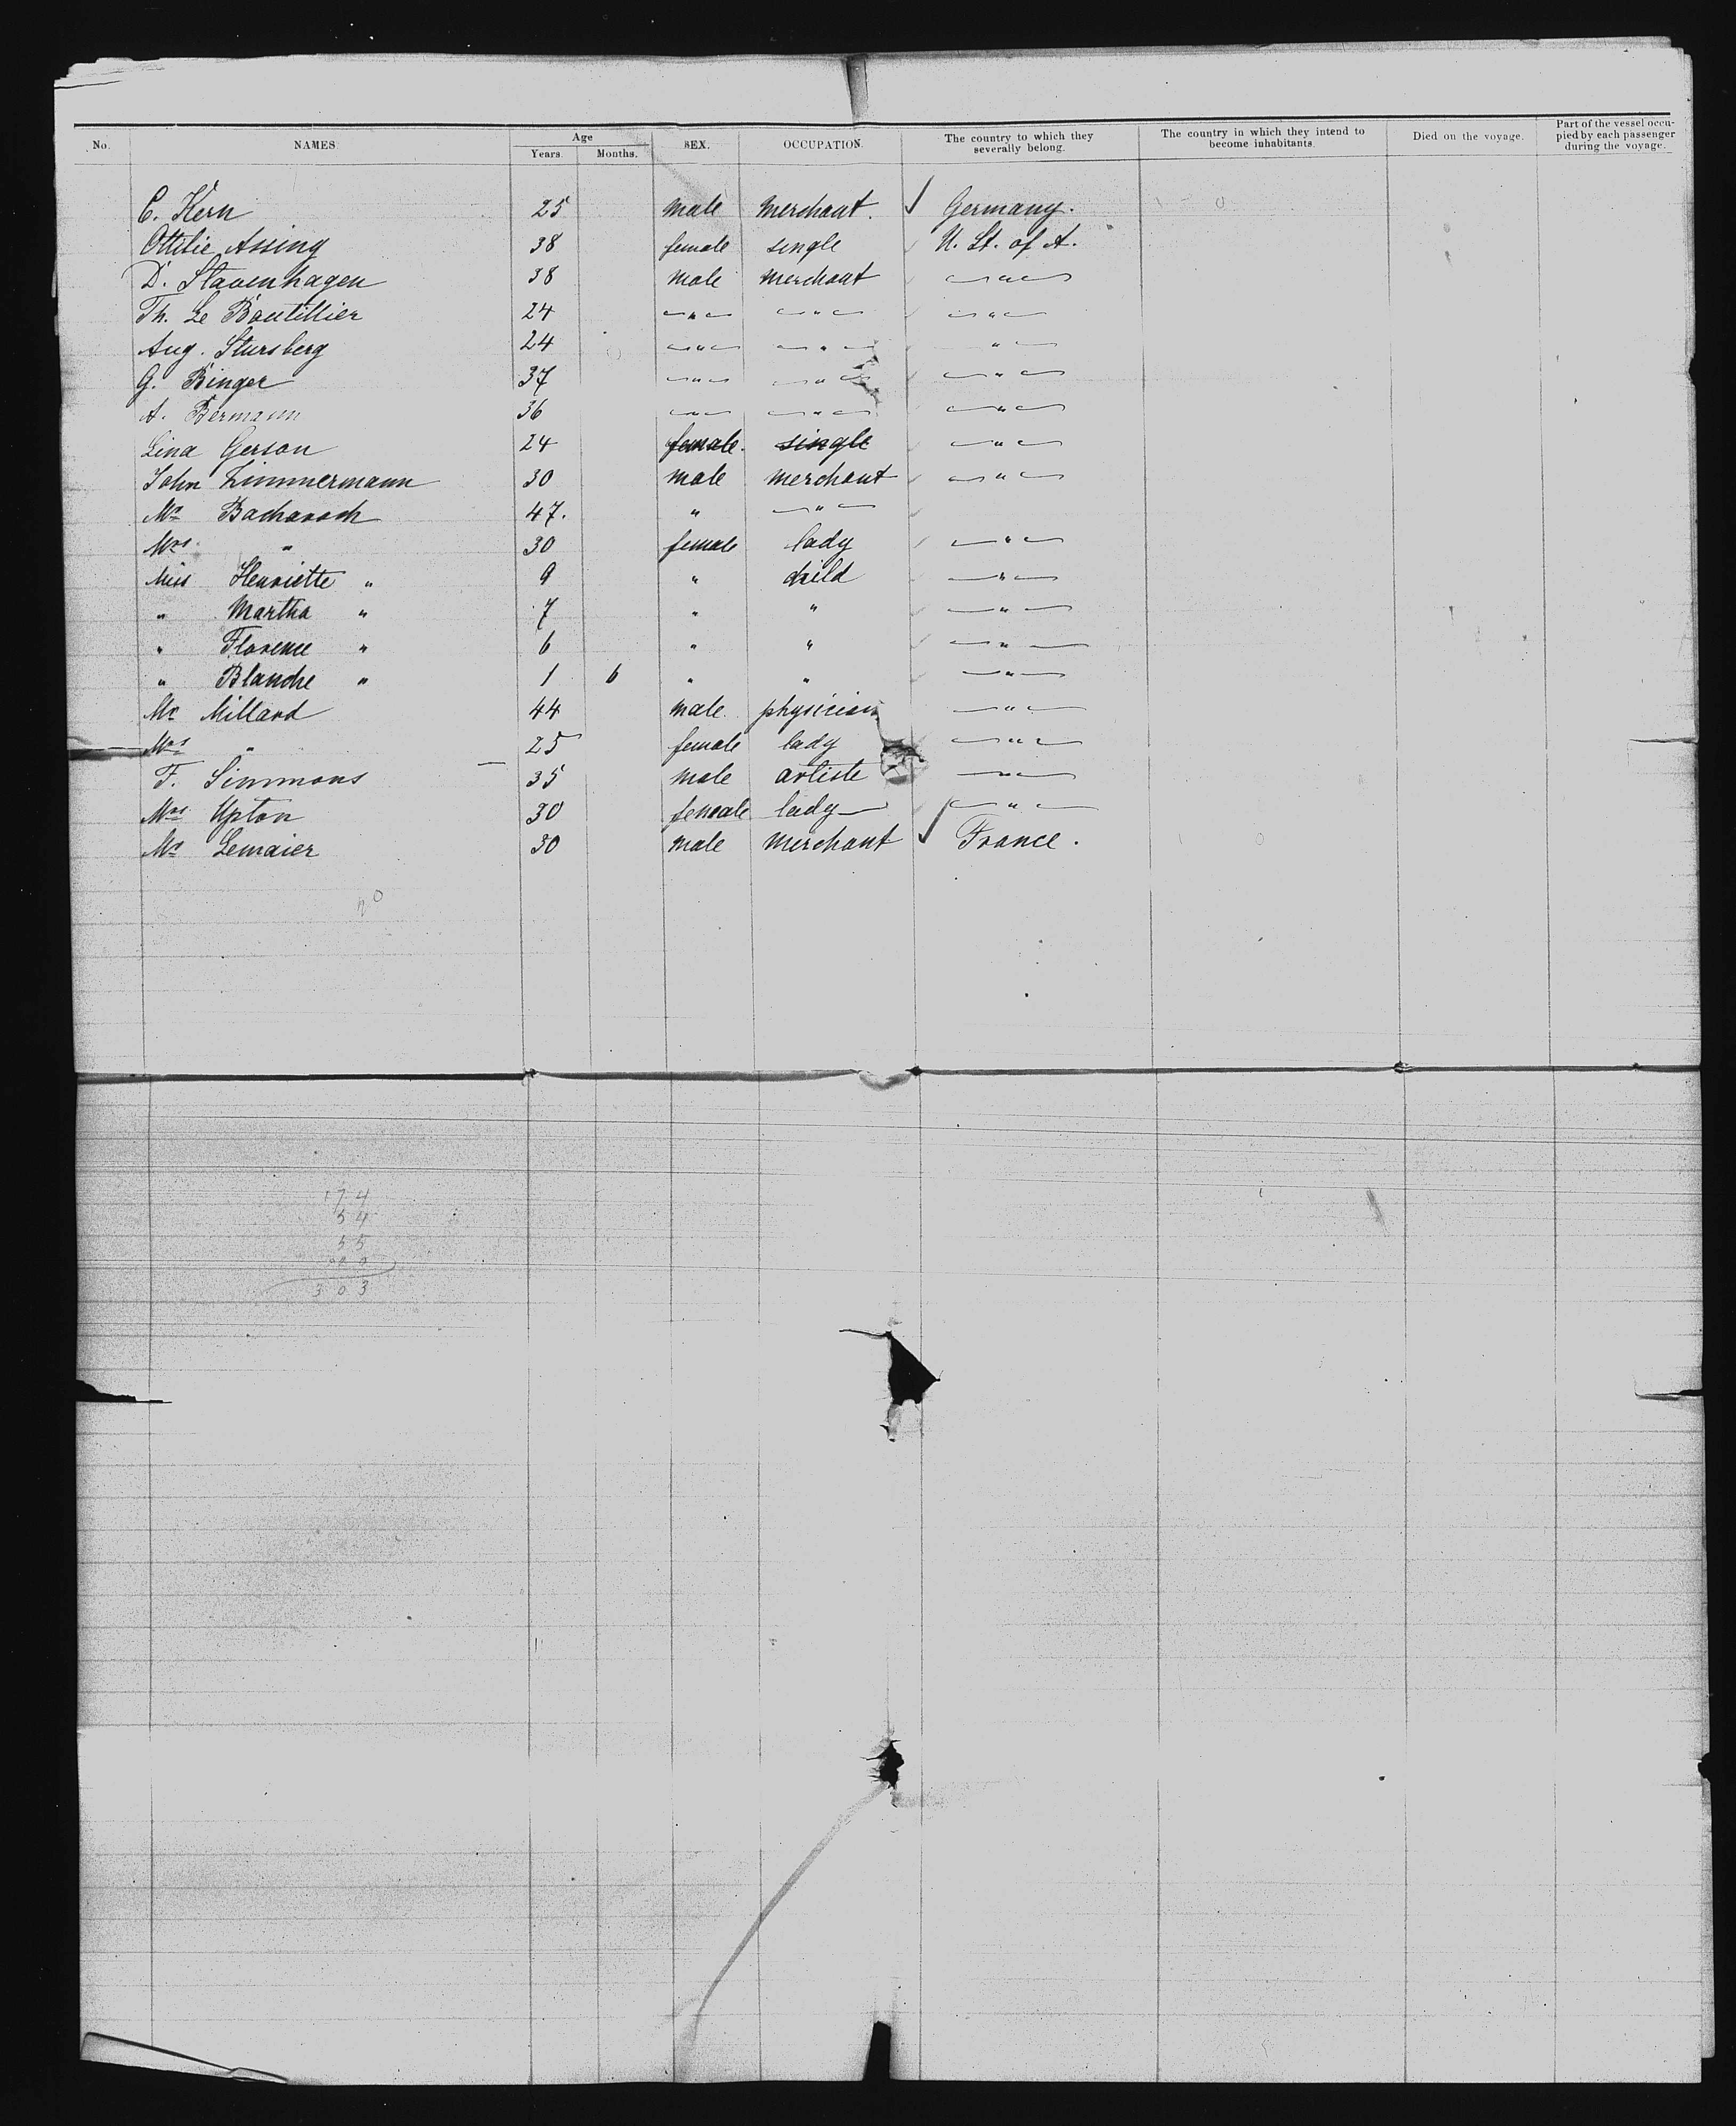 No. NAMES. Age Years. Months. SEX. OCCUPATION. The country to which they severally belong. The country in which they intend to become inhabitants. Died on the voyage. Part of the vessel occupied by each passenger during the voyage.
C. Kern 25 male merchant. Germany.
Ottilie Assing 38 female single U. St. of A.
D. Stavenhagen 38 male merchant — " —
Th. Le Boutillier 24 — " — — " — — " —
Aug. Stursberg 24 — " — — " — " —
G. Binger 37 — " — — " — — " —
A. Bermann 36 — " — — " — — " —
Lina Gerson 24 female. single — " —
John Zimmermann 30 male merchant — " —
Mr Bacharach 47. " — " —
Mrs " 30 female lady — " —
Miss Henriette " 9 " child — " —
" Martha " 7 " " — " —
" Florence " 6 " " — " —
" Blanche " 1 6 " " — " —
Mr Millard 44 male. physician — " —
Mrs " 25 female lady — " —
F. Simmons 35 male artiste — " —
Mrs Upton 30 female lady — " —
Mr Lemaier 30 male merchant France.
20
174
54
55
303